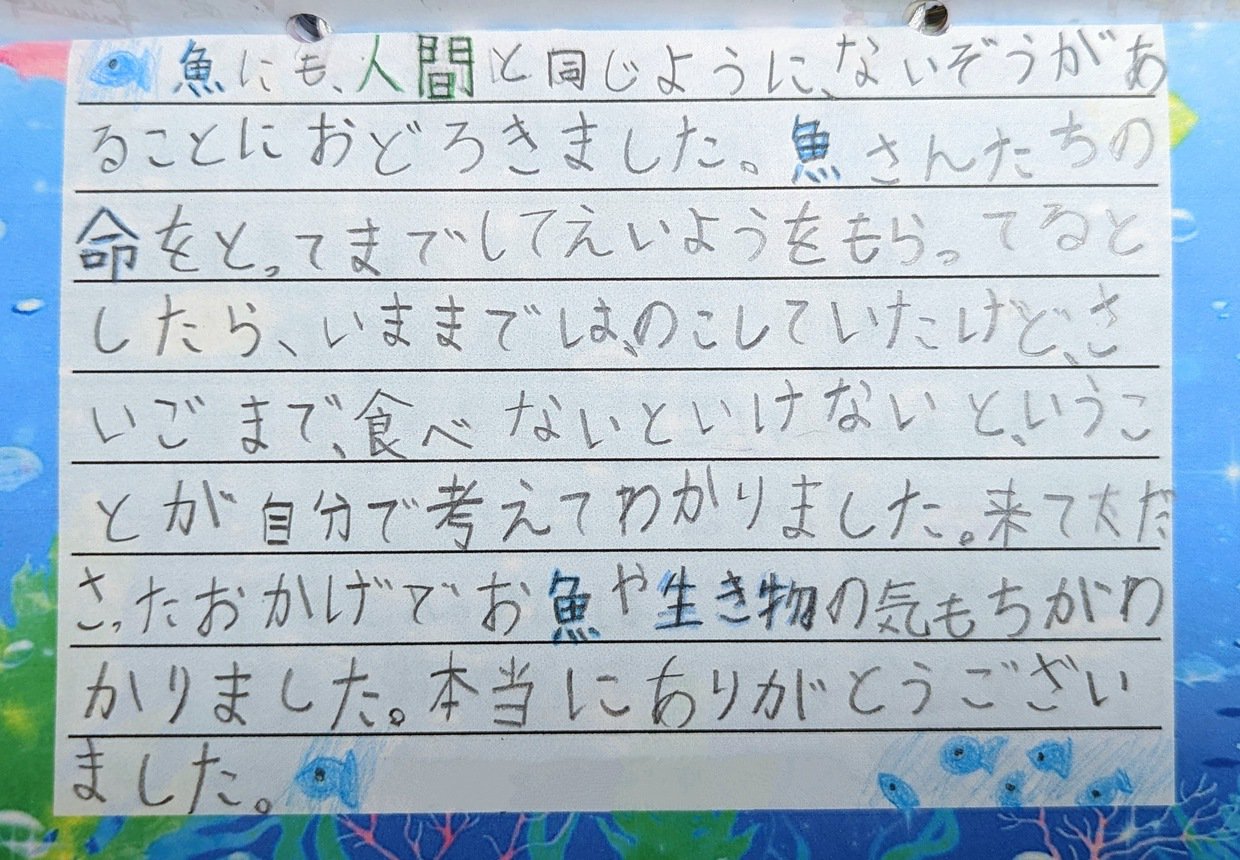 魚にも、人間と同じように、ないぞうがあ
ることにおどろきました。魚さんたちの
命をとってまでしてえいようをもらってると
したら、いままでは、のこしていたけど、さ
いごまで、食べないといけないと、いうこ
とが自分で考えてわかりました。来て太だ
さったおかげでお魚や生き物の気もちがわ
かりました。本当にありがとうござい
ました。